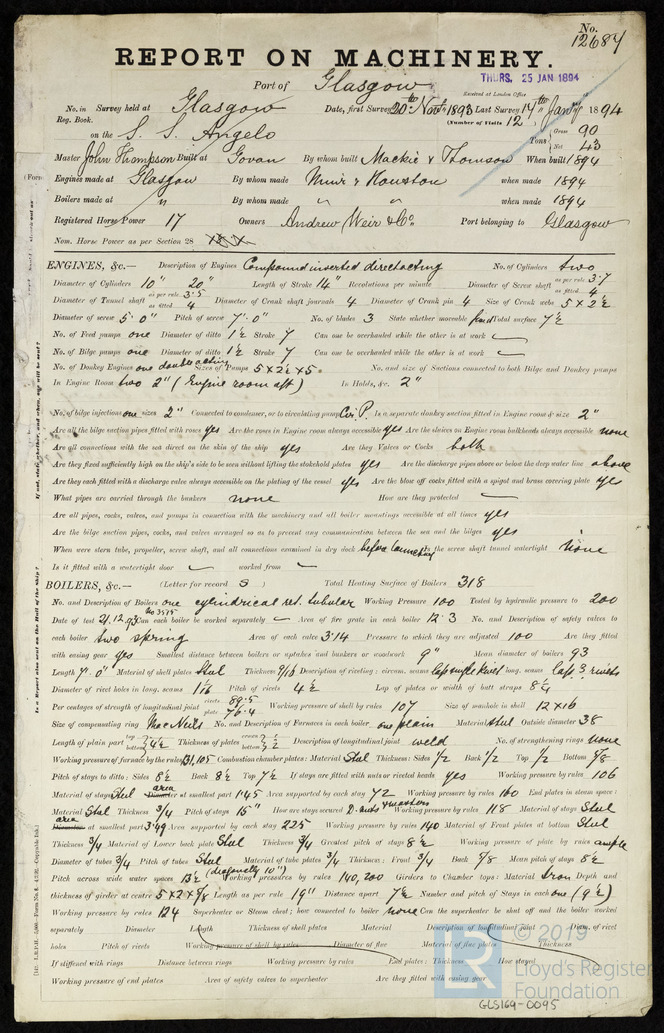 No. 12684
REPORT ON MACHINERY.
Port of Glasgow
THURS, 25 JAN 1894
Received at London Office
No. in Survey held at Glasgow Date, first Survey 20th Novr 1893 Last Survey 17th Jany 1894
Reg. Book. (Number of Visits 12)
on the S. S. Angelo Tons Gross 90 Net 43
Master John Thompson Built at Govan By whom built Mackie & Thomson When built 1894
Engines made at Glasgow By whom made Muir & Houston when made 1894
Boilers made at " By whom made " " when made 1894
Registered Horse Power 17 Owners Andrew Weir & Co. Port belonging to Glasgow
Nom. Horse Power as per Section 28
ENGINES, &c.— Description of Engines Compound inverted direct acting No. of Cylinders two
Diameter of Cylinders 10" 20" Length of Stroke 14" Revolutions per minute Diameter of Screw shaft as per rule 3.7 as fitted 4
Diameter of Tunnel shaft as per rule 3.5 as fitted 4 Diameter of Crank shaft journals 4 Diameter of Crank pin 4 Size of Crank webs 5 x 2½
Diameter of screw 5'.0" Pitch of screw 7'.0" No. of blades 3 State whether moveable fixed Total surface 7½
No. of Feed pumps one Diameter of ditto 1½ Stroke 7 Can one be overhauled while the other is at work
No. of Bilge pumps one Diameter of ditto 1½ Stroke 7 Can one be overhauled while the other is at work
No. of Donkey Engines one double acting Sizes of Pumps 5 x 2½ x 5 No. and size of Suctions connected to both Bilge and Donkey pumps
In Engine Room two 2" (Engine room aft) In Holds, &c. 2"
No. of bilge injections one sizes 2" Connected to condenser, or to circulating pump Cir. P. Is a separate donkey suction fitted in Engine room & size 2"
Are all the bilge suction pipes fitted with roses yes Are the roses in Engine room always accessible yes Are the sluices on Engine room bulkheads always accessible none
Are all connections with the sea direct on the skin of the ship yes Are they Valves or Cocks both
Are they fixed sufficiently high on the ship's side to be seen without lifting the stokehold plates yes Are the discharge pipes above or below the deep water line above
Are they each fitted with a discharge valve always accessible on the plating of the vessel yes Are the blow off cocks fitted with a spigot and brass covering plate yes
What pipes are carried through the bunkers none How are they protected
Are all pipes, cocks, valves, and pumps in connection with the machinery and all boiler mountings accessible at all times yes
Are the bilge suction pipes, cocks, and valves arranged so as to prevent any communication between the sea and the bilges yes
When were stern tube, propeller, screw shaft, and all connections examined in dry dock before launching Is the screw shaft tunnel watertight none
Is it fitted with a watertight door worked from
BOILERS, &c.— (Letter for record S) Total Heating Surface of Boilers 318
No. and Description of Boilers one cylindrical ret. tubular Working Pressure 100 Tested by hydraulic pressure to 200
No 3575
Date of test 21.12.93 Can each boiler be worked separately Area of fire grate in each boiler 12.3 No. and Description of safety valves to
each boiler two spring Area of each valve 3.14 Pressure to which they are adjusted 100 Are they fitted
with easing gear yes Smallest distance between boilers or uptakes and bunkers or woodwork 9" Mean diameter of boilers 93
Length 7'.0" Material of shell plates Steel Thickness 7/16 Description of riveting: circum. seams lap single rivet long. seams lap 3 rivets
Diameter of rivet holes in long. seams 1 1/16 Pitch of rivets 4½ Lap of plates or width of butt straps 8¼
Per centages of strength of longitudinal joint rivets 89.5 plate 76.4 Working pressure of shell by rules 107 Size of manhole in shell 12 x 16
Size of compensating ring MacNeils No. and Description of Furnaces in each boiler one plain Material steel Outside diameter 38
Length of plain part Thickness of plates Description of longitudinal joint weld No. of strengthening rings none
Working pressure of furnace by the rules 131,105 Combustion chamber plates: Material Steel Thickness: Sides ½ Back ½ Top ½ Bottom 5/8
Pitch of stays to ditto: Sides 8½ Back 8½ Top 7½ If stays are fitted with nuts or riveted heads yes Working pressure by rules 106
Material of stays Steel area at smallest part 1.45 Area supported by each stay 72 Working pressure by rules 160 End plates in steam space:
Material Steel Thickness ¾ Pitch of stays 15" How are stays secured D. nuts & washers Working pressure by rules 118 Material of stays Steel
area at smallest part 3.49 Area supported by each stay 225 Working pressure by rules 140 Material of Front plates at bottom Steel
Thickness ¾ Material of Lower back plate Steel Thickness ¾ Greatest pitch of stays 8½ Working pressure of plate by rules ample
Diameter of tubes ¾ Pitch of tubes Steel Material of tube plates ¾ Thickness: Front ¾ Back 5/8 Mean pitch of stays 8½
Pitch across wide water spaces 13½ (diagonally 10") Working pressures by rules 140, 200 Girders to Chamber tops: Material Iron Depth and
thickness of girder at centre 5 x 2 x 5/8 Length as per rule 19" Distance apart 7½ Number and pitch of Stays in each one (9½)
Working pressure by rules 124 Superheater or Steam chest; how connected to boiler none Can the superheater be shut off and the boiler worked
separately Diameter Length Thickness of shell plates Material Description of longitudinal joint Diam. of rivet
holes Pitch of rivets Working pressure of shell by rules Diameter of flue Material of flue plates Thickness
If stiffened with rings Distance between rings Working pressure by rules End plates: Thickness How stayed
Working pressure of end plates Area of safety valves to superheater Are they fitted with easing gear
© 2019
Lloyd's Register
Foundation
GLS169-0095